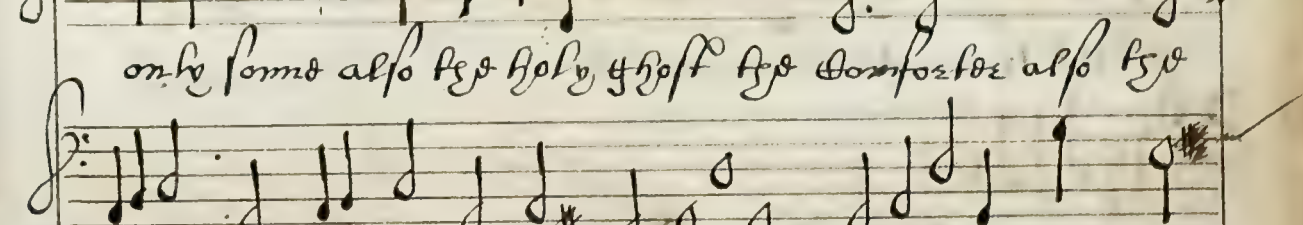 only sonne also the holy ghost the Comforter also the